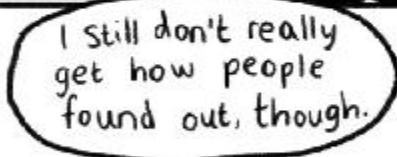 I still don't really
get how people
found out, though.